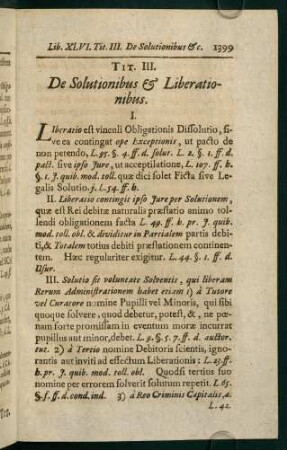 Lib. XLVI. Tit. III. De Solutionibus &c. 1399
TIT. III.
De Solutionibus & Liberatio-
nibus.
I.
Liberatio est vinculi Obligationis Dissolutio, si-
ve ea contingat ope Exceptionis, ut pacto de
non petendo, L. 95. §. 4. ff. d. solut. L. 2. §. 1. ff. d.
pact. sive ipso Jure, ut acceptilatione, L. 107. ff. h.
§. 1. J. quib. mod. toll. quæ dici solet Ficta sive Le-
galis Solutio. j. L. 54. ff. h.
II. Liberatio contingit ipso Jure per Solutionem,
quæ est Rei debitæ naturalis præstatio animo tol-
lendi obligationem facta L. 49. ff. h. pr. J. quib.
mod. toll. obl. & dividitur in Partialem partis debi-
ti, & Totalem totius debiti præstationem continen-
tem. Hæc regulariter exigitur. L. 44. §. 1. ff. d.
Usur.
III. Solutio fit voluntate Solventis, qui liberam
Rerum Administrationem habet etiam 1) à Tutore
vel Curatore nomine Pupilli vel Minoris, qui sibi
quoque solvere, quod debetur, potest, &, ne pœ-
nam forte promissam in eventum moræ incurrat
pupillus aut minor, debet. L. 9. §. 5. 7. ff. d. auctor.
tut. 2) à Tertio nomine Debitoris scientis, igno-
rantis aut inviti ad effectum Liberationis: L. 23. ff.
h. pr. J. quib. mod. toll. obl. Quodsi tertius suo
nomine per errorem solverit solutum repetit. L. 65.
§. 5. ff. d. cond. ind. 3) à Reo Criminis Capitalis,
L. 42.